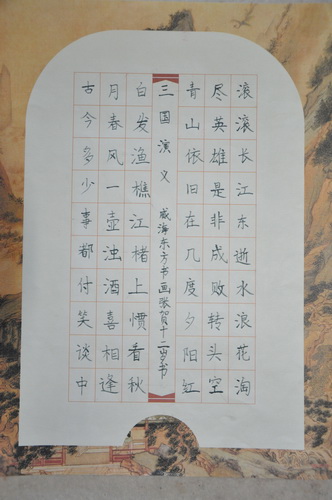 滚滚长江东逝水浪花淘
尽英雄是非成败转头空
青山依旧在几度夕阳红
三国演义 威海东方书画张贺十二岁书
白发渔樵江楮上惯看秋
月春风一壶浊酒喜相逢
古今多少事都付笑谈中